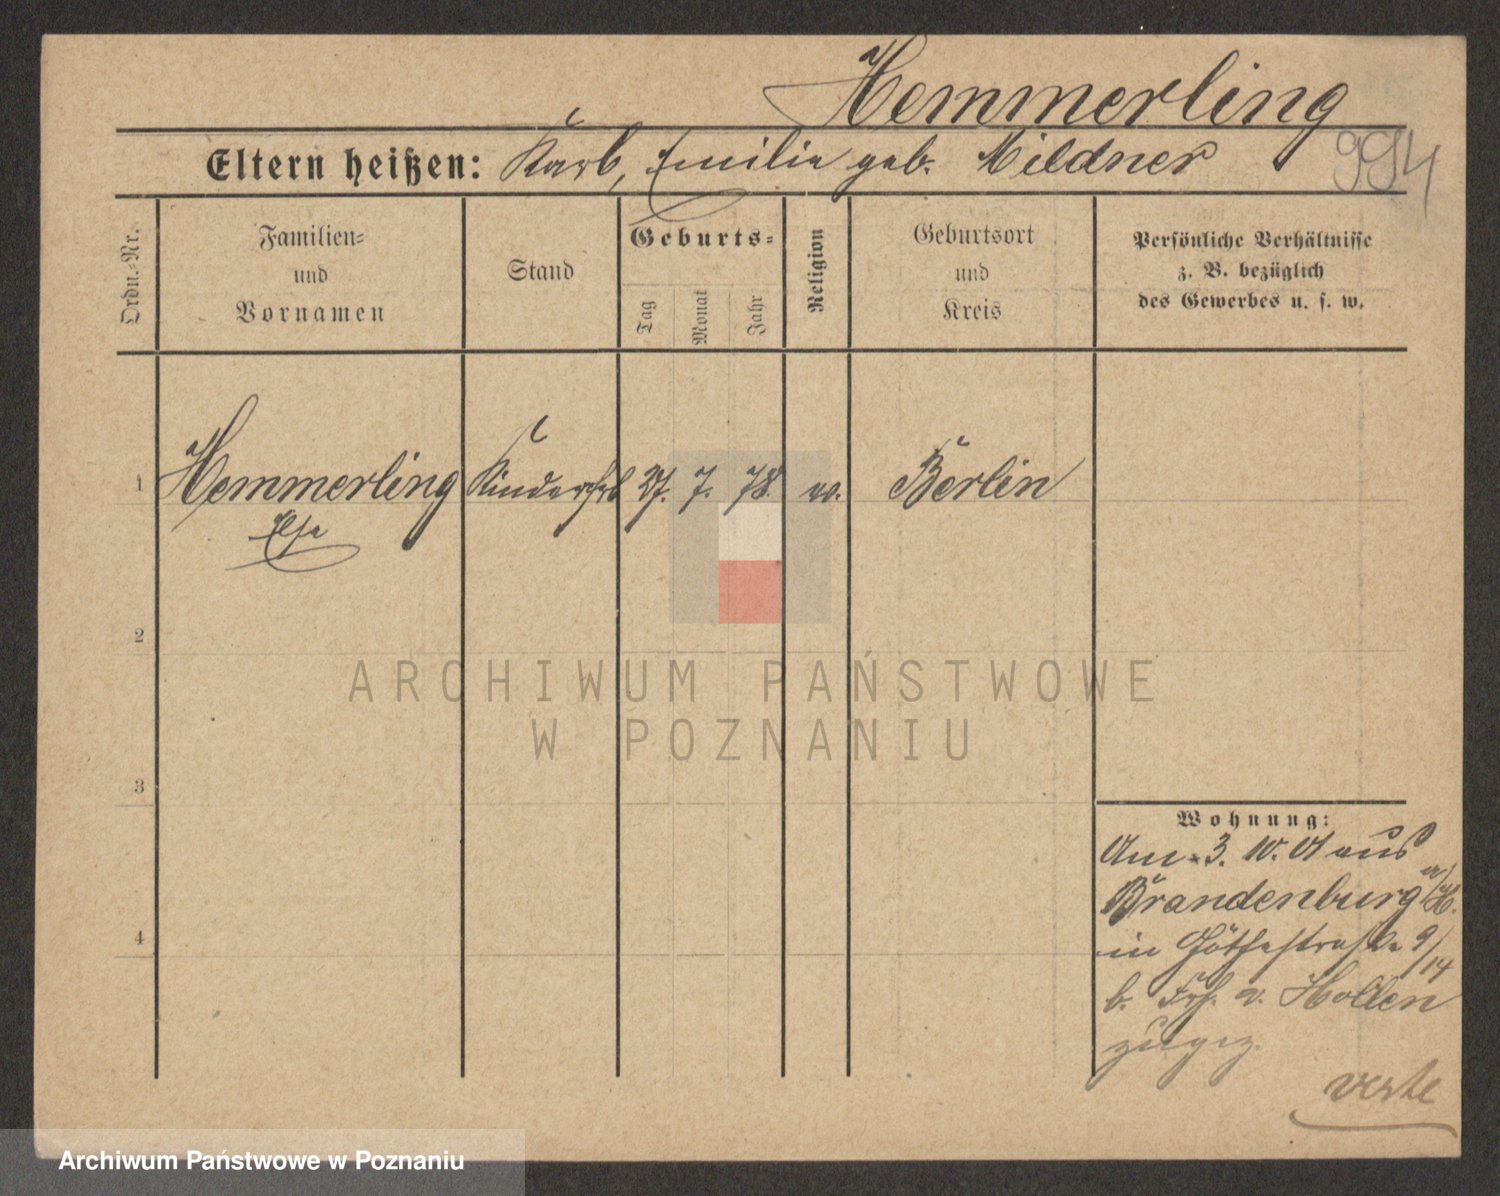 Hemmerling
Eltern heißen: Karl, Emilie geb. Mildner
994
Ordn.-Nr.
Familien-
und
Vornamen
Stand
Geburts-
Tag
Monat
Jahr
Religion
Geburtsort
und
Kreis
Persönliche Verhältnisse
z. B. bezüglich
des Gewerbes u. s. w.
1 Hemmerling 27. 7. 78. ev. Berlin
Else
2
ARCHIWUM PAŃSTWOWE
W POZNANIU
3
4
Wohnung:
Am 3. 10. 01 aus
Brandenburg a/H.
in Göthestraße 9/14
b. Frh. v. Hollen
zugez.
verte
Archiwum Państwowe w Poznaniu